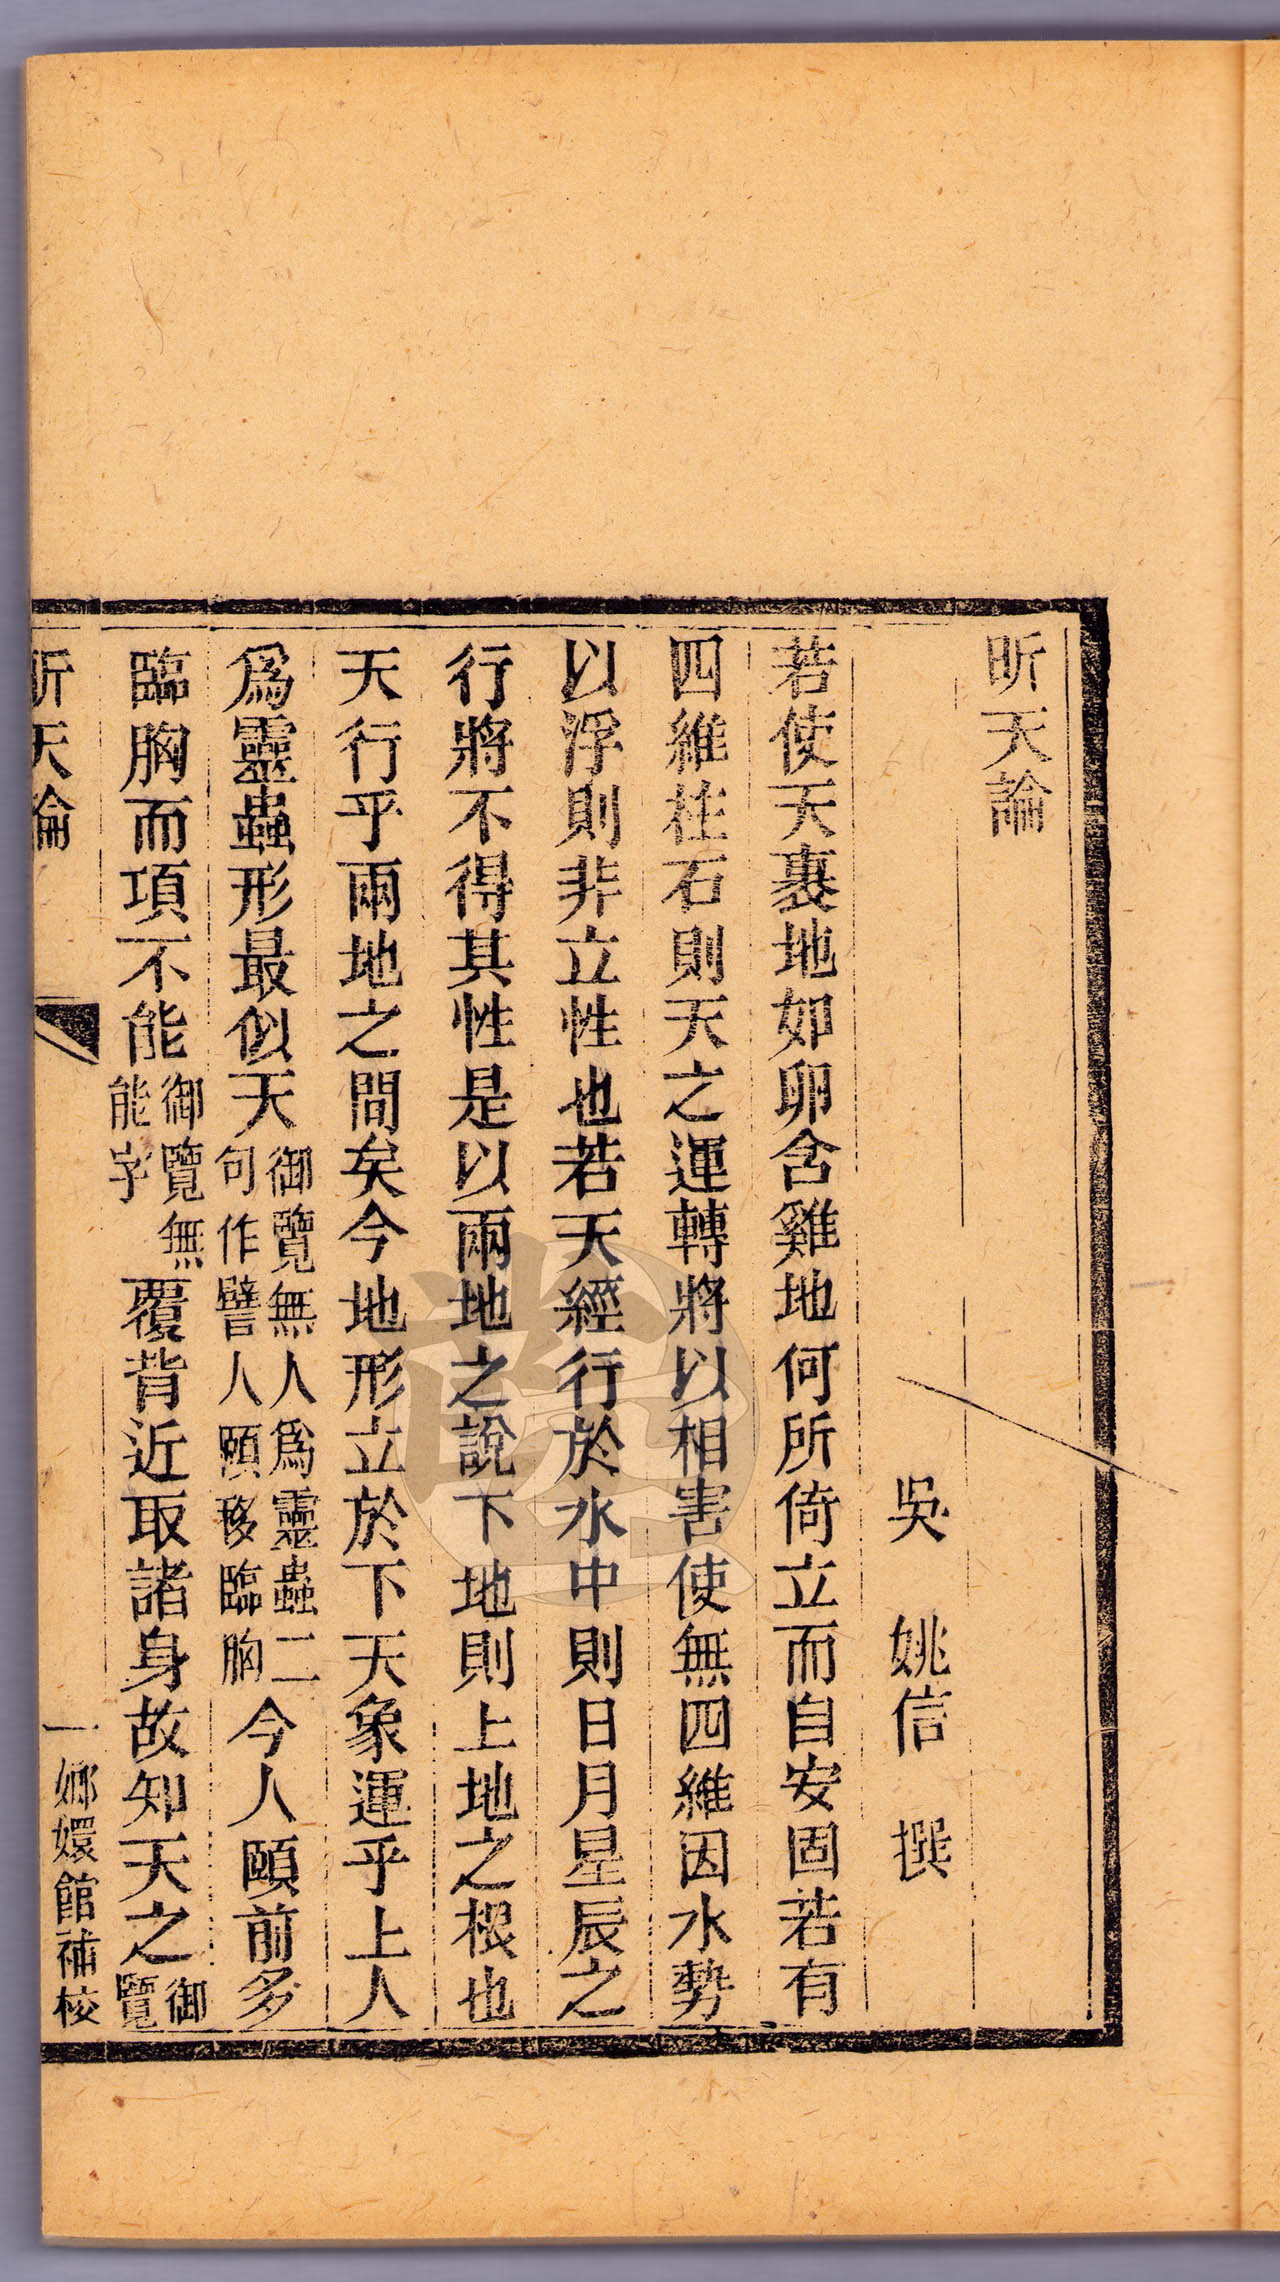 昕天論
吳 姚信 撰
若使天裹地如卵含雞地何所倚立而自安固若有
四維柱石則天之運轉將以相害使無四維因水勢
以浮則非立性也若天經行於水中則日月星辰之
行將不得其性是以兩地之說下地則上地之根也
天行乎兩地之間矣今地形立於下天象運乎上人
爲靈蟲形最似天御覽無人爲靈蟲二句作譬人頤移臨胸今人頤前多
臨胸而項不能御覽無能字覆背近取諸身故知天之御覽
昕天論 一 嫏嬛館補校